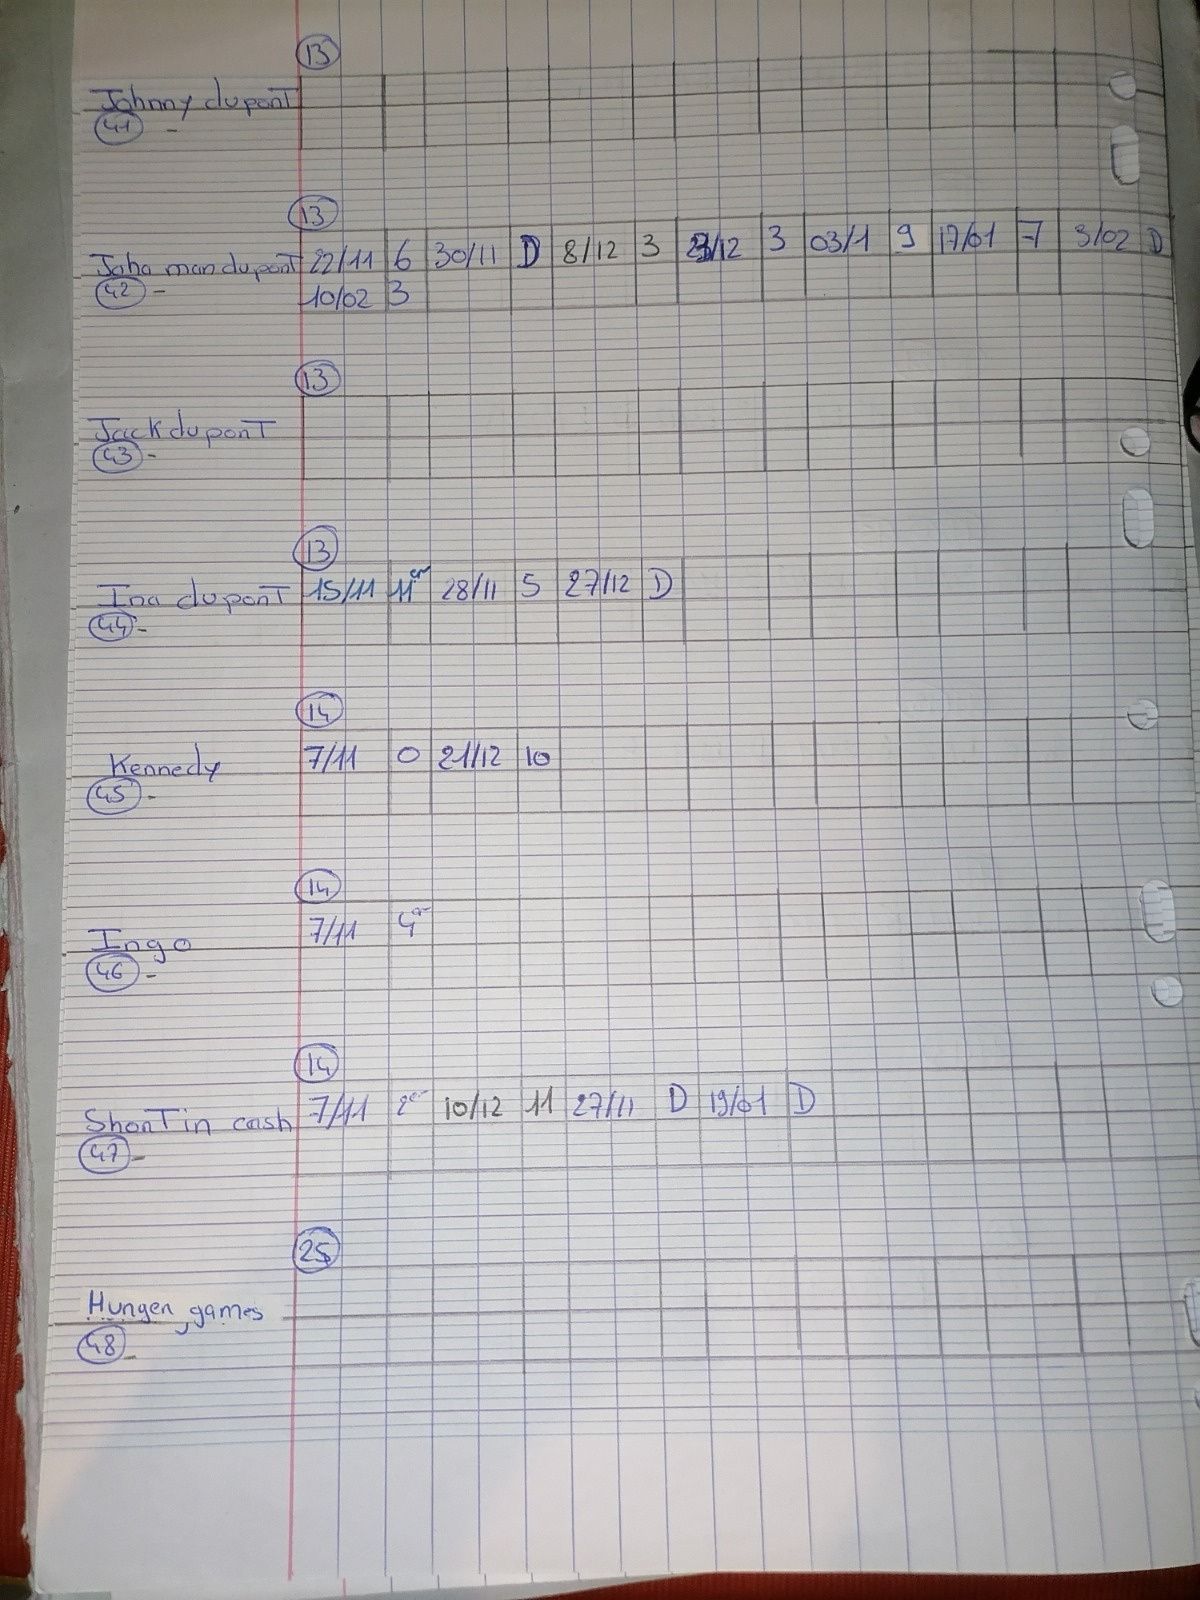 13
Johnny dupont
41 -
13
Joha man dupont 22/11 6 30/11 D 8/12 3 23/12 3 03/1 9 17/01 7 3/02 D
42 - 10/02 3
13
Jack dupont
43 -
13
Ina dupont 15/11 11er 28/11 5 27/12 D
44 -
14
Kennedy 7/11 0 21/12 10
45 -
14
Ingo 7/11 4er
46 -
14
Shontin cash 7/11 2er 10/12 11 27/11 D 19/01 D
47 -
25
Hunger games
48 -